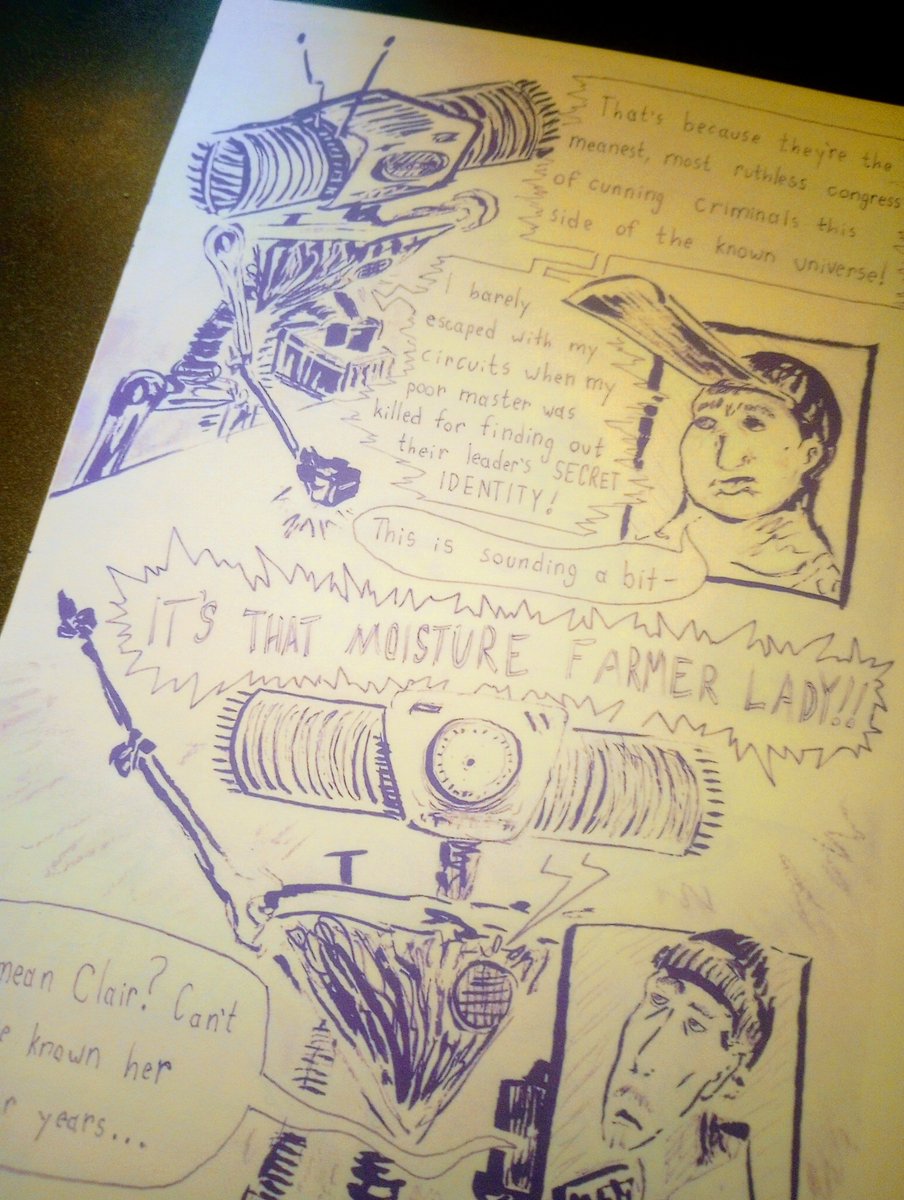 That's because they're the
meanest, most ruthless congress
of cunning criminals this
side of the known universe!
I barely
escaped with my
circuits when my
poor master was
killed for finding out
their leader's SECRET
IDENTITY!
This is sounding a bit-
IT'S THAT MOISTURE FARMER LADY!!
mean Clair? Can't
known her
years...